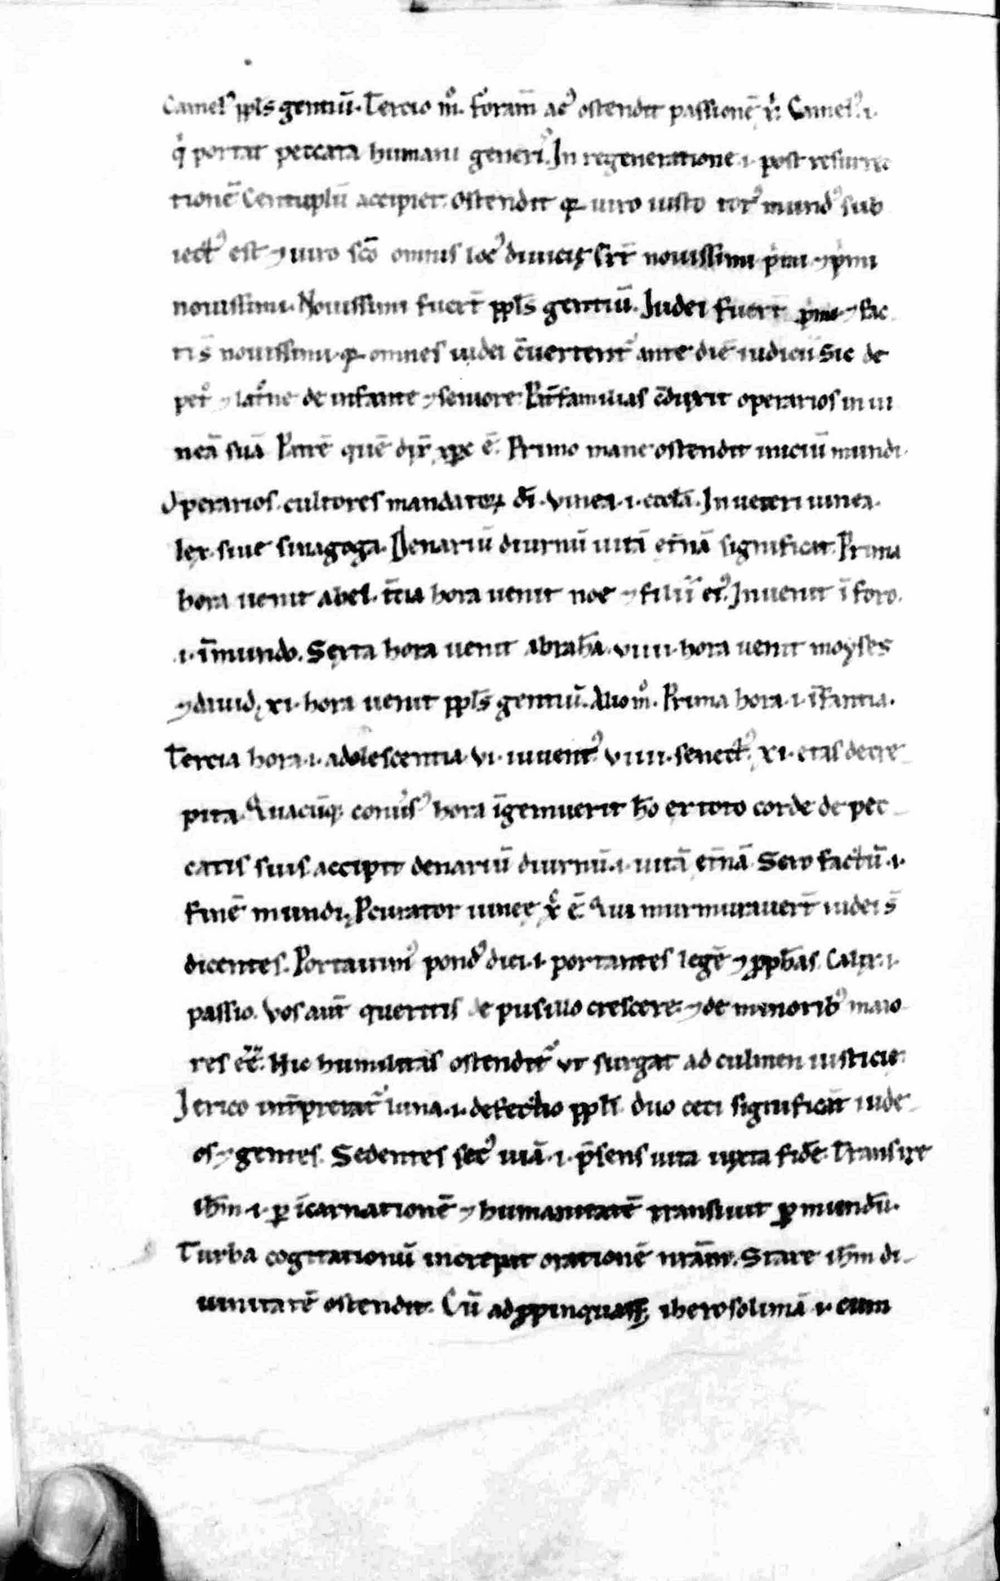 Camel᷒ ppl̄s gentiū. Tercio m̊. foram̄ ac᷒ ostendit passionē xp̄i. Camel᷒ .i.
q̇ portat peccata humani generis᷒. In regeneratione .i. post resurrec
tionē Centuplū accipiet. Ostendit qđ uiro iusto tot᷒ mund᷒ sub
iect᷒ est ⁊ uiro sc̄o omnis loc᷒ diuicię. Er̄t nouissimi p̄mi ⁊ p̄mi
nouissimi. Nouissimi fuer̄t ppl̄s gentiū. Iudei fuer̄t p̄mi ⁊ fac
ti s̄ nouissimi. qđ omnes iudei c̄uertent᷑ ante diē iudicii. Sic de
pet̊ ⁊ lat̊ne de infante ⁊ seniore. Pat̄familias c̄duxit operarios in ui
neā suā. Patrē quē dix̄ xp̄c ē. Primo mane ostendit iniciū mundi.
Operarios. cultores mandatoꝝ dī. Vinea .i. eccl̄a. In ueteri uinea.
lex. siue sinagoga. Denariū diurnū uitā et̄nā significat. Prima
hora uenit abel. t̄cia hora uenit noe ⁊ filii ei᷒. Inuenit ī foro.
.i. ī mundo. Sexta hora uenit abrahā. viiii. hora uenit moyses
⁊ dauid. xi. hora uenit ppl̄s gentiū. Alio m̊. Prima hora .i. īfantia.
Tercia hora .i. adolescentia. vi. iuuent᷒. viiii. senect᷒. xi. etas decre
pita. Quacūq; conuīs᷒ hora īgemuerit hō ex toto corde de pec
catis suis accipit denariū diurnū .i. uitā et̄nā. Sero factū .i.
finē mundi. Pcurator uineę xp̄c ē. Qui murmurauer̄t iudei s̄
dicentes. Portauim᷒ pond᷒ diei .i. portantes legē ⁊ pph̄as. Calix .i.
passio. Vos aut̄ queritis de pusillo crescere. ⁊ de minorib᷒ maio
res eē. Hic humilitas ostendit᷑ ut surgat ad culmen iusticię.
Ierico int̄pretat᷑ luna .i. defectio ppl̄i. duo ceci significāt iude
os ⁊ gentes. Sedentes sec᷒ uiā .i. p̄sens uita iuxta fidē. Transire
ih̄m .i. ꝑ īcarnationē ⁊ humanitatē transiuit ꝑ mundū.
Turba cogitationū increpat orationē nr̄am. Stare ih̄m di
uinitatē ostendit. Cū adꝓpinquass; iherosolimā .i. cum